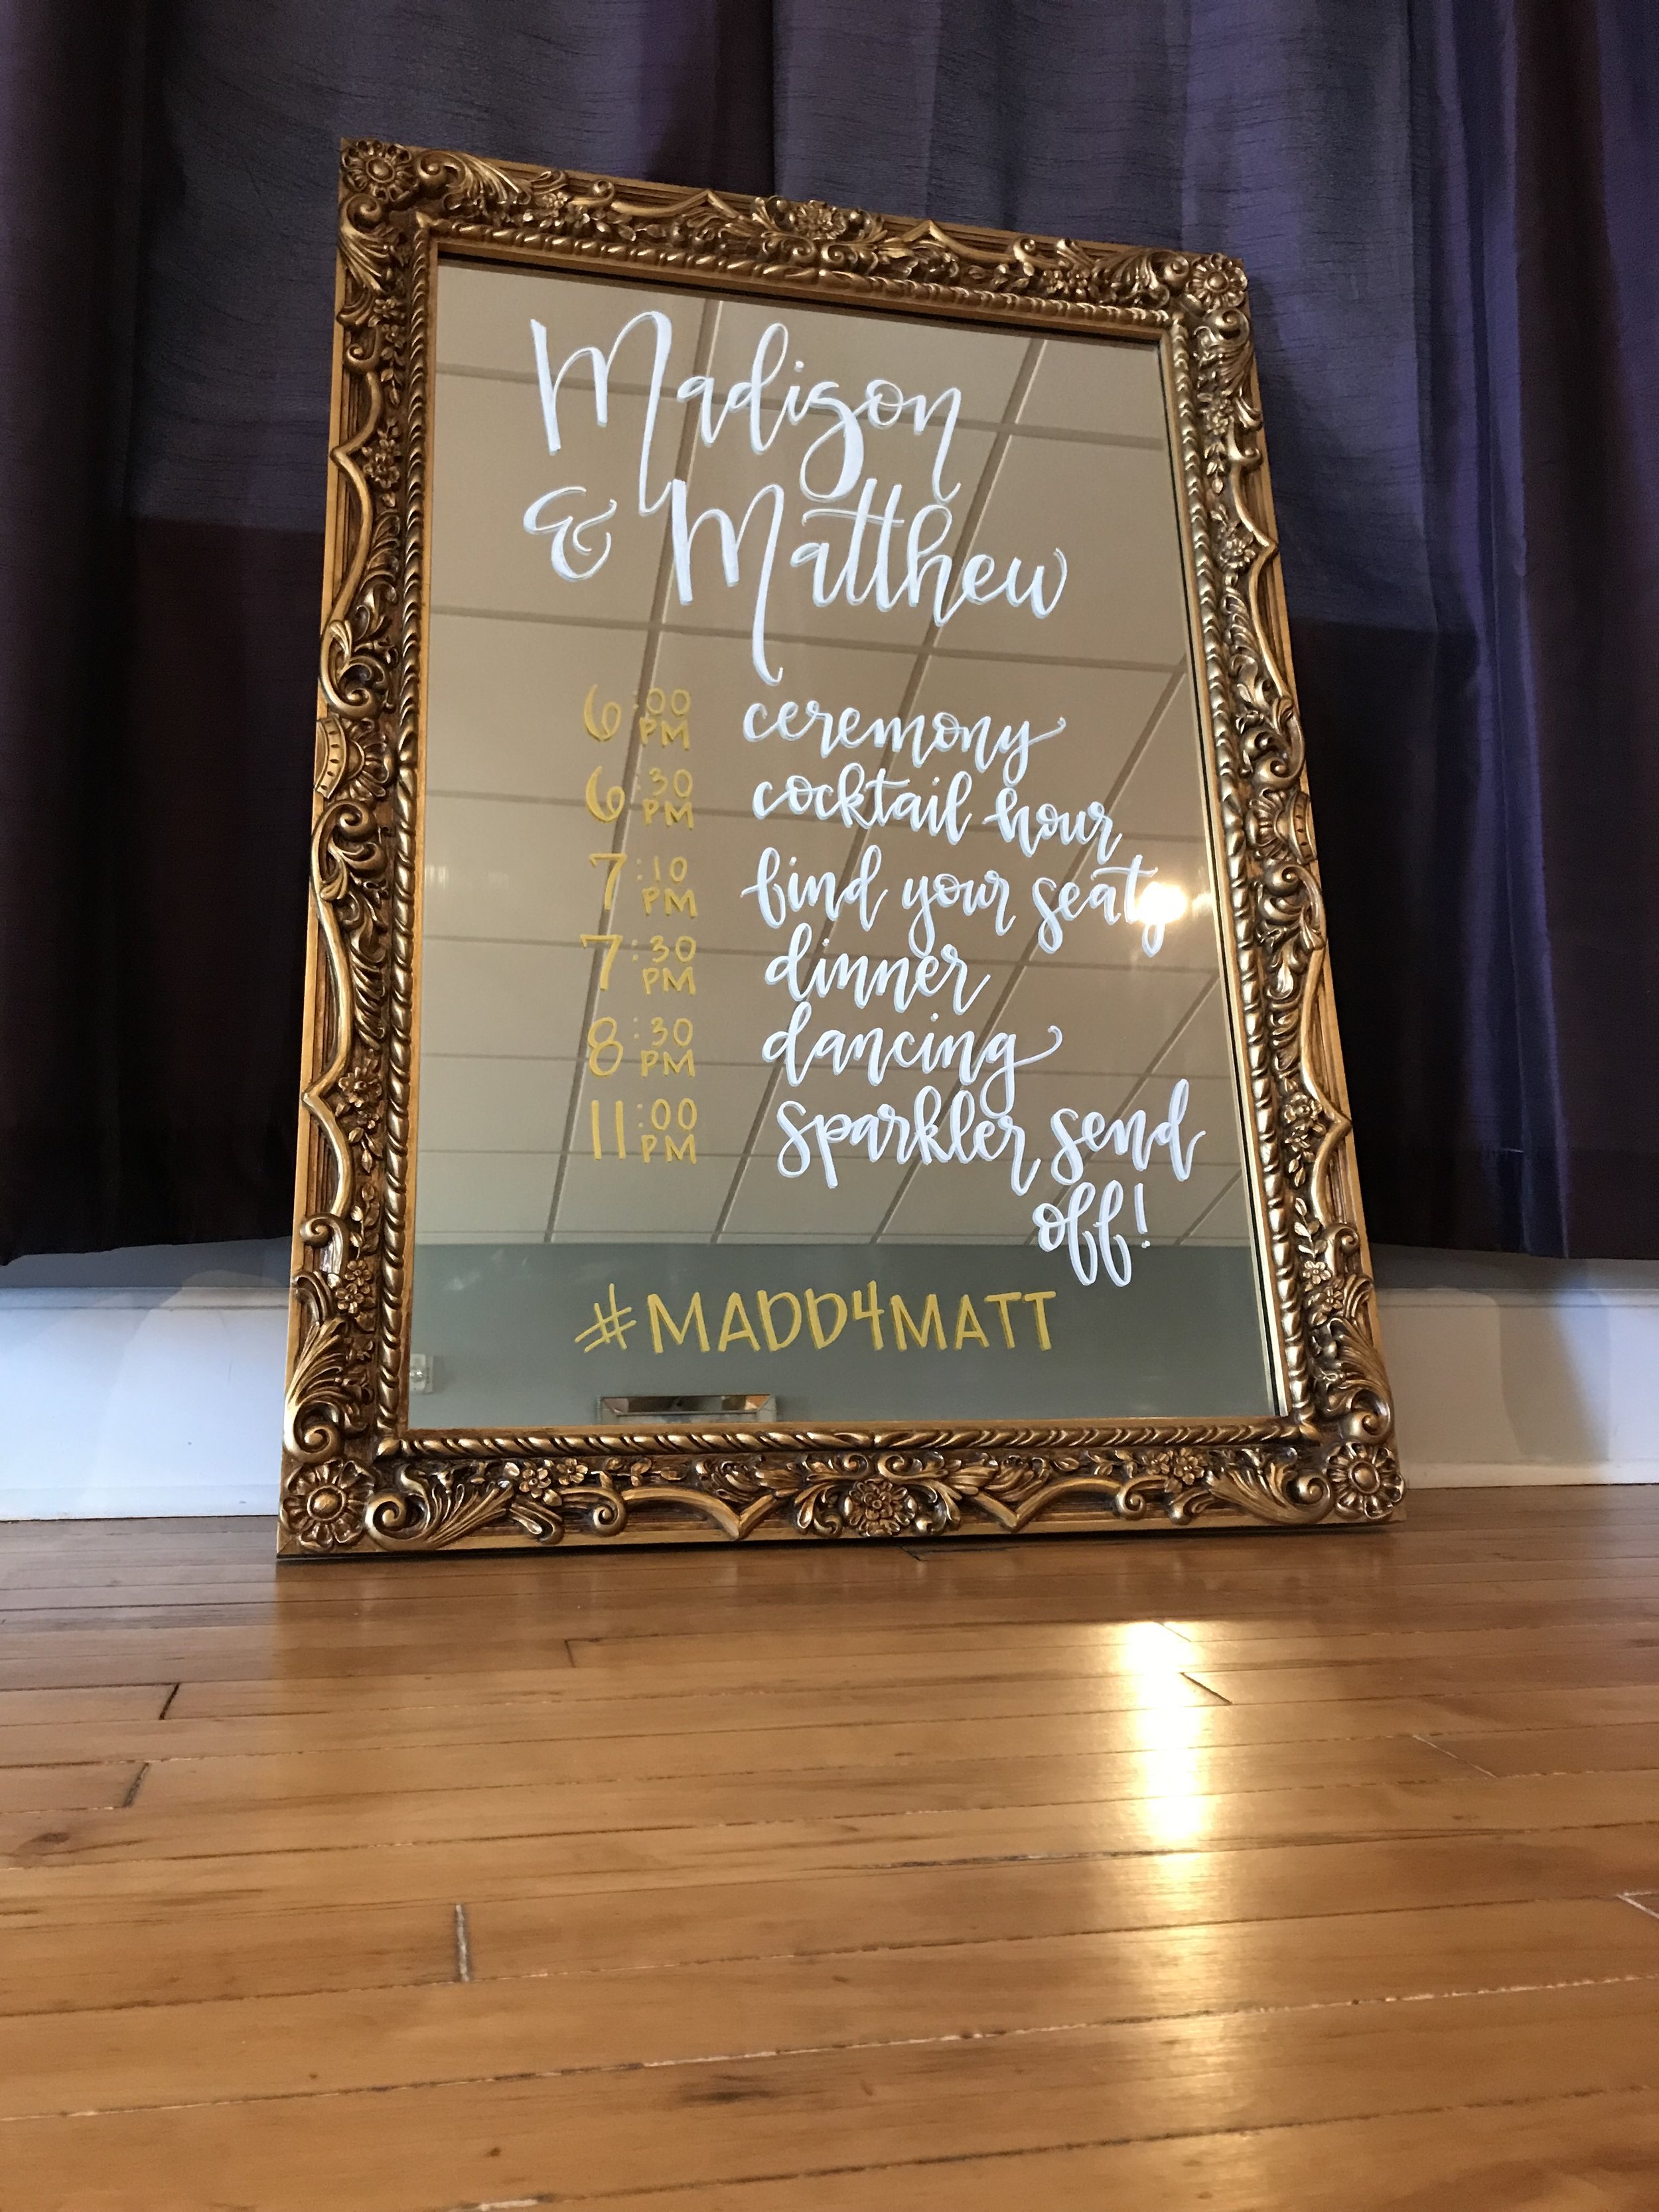 Madison
& Matthew
6:00 PM ceremony
6:30 PM cocktail hour
7:10 PM find your seats
7:30 PM dinner
8:30 PM dancing
11:00 PM sparkler send
off!
#MADD4MATT